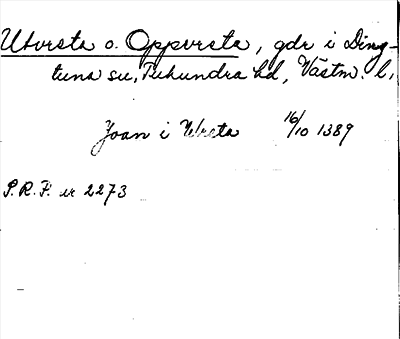 Utvrsta o. Oppvrsta, gdr i Ding-
tuna sn, Tuhundra hd, Västm. l,
Joan i Wrsta 16/10 1389
P.R.P. nr 2273